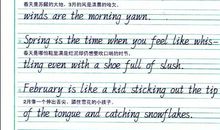 春天是苏醒的大地，3月的风是清晨的哈欠。
winds are the morning yawn.
Spring is the time when you feel like whis-
春天是哪怕鞋里满是烂泥却仍想要吹口哨的时节。
tling even with a shoe full of slush.
February is like a kid sticking out the tip
2月像一个伸出舌尖，接住雪花的小孩子。
of the tongue and catching snowflakes.